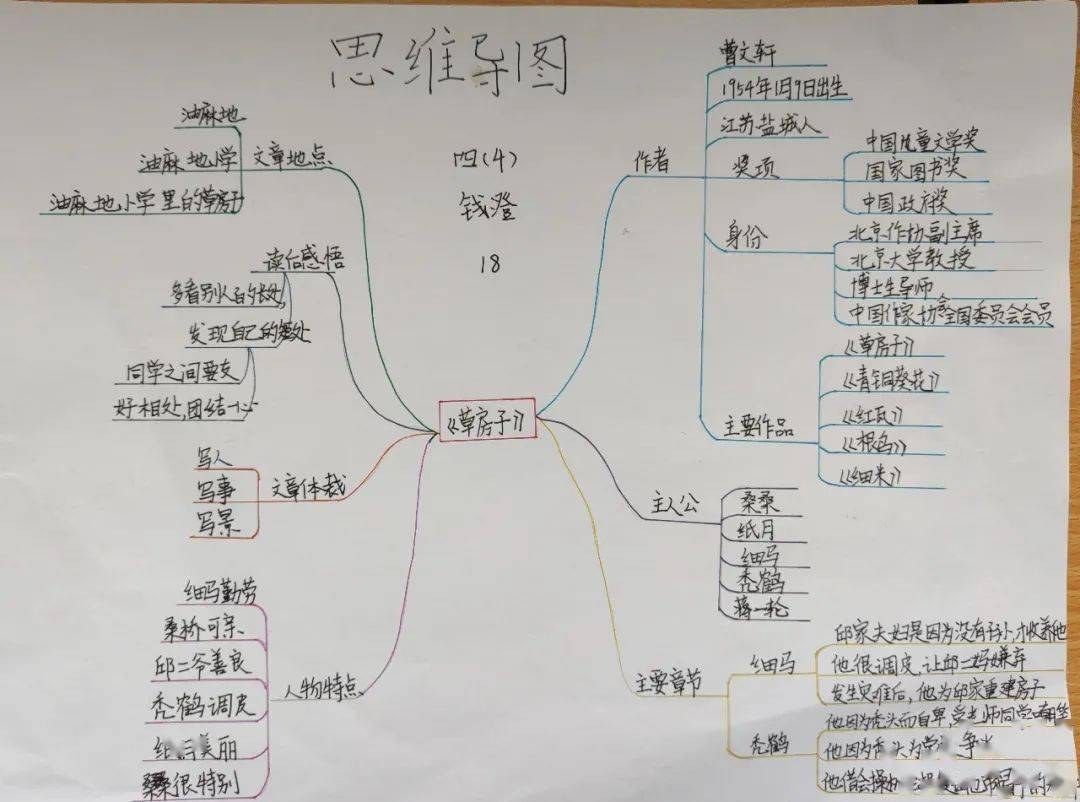 思维导图
四(4)
钱澄
18
《草房子》
文章地点
油麻地
油麻地小学
油麻地小学里的草房子
读后感悟
多看别人的长处,
发现自己的短处
同学之间要友
好相处,团结一心
文章体裁
写人
写事
写景
人物特点
细马勤劳
桑桥可亲
邱二爷善良
秃鹤调皮
纸月美丽
桑桑很特别
作者
曹文轩
1954年1月9日出生
江苏盐城人
奖项
中国儿童文学奖
国家图书奖
中国政府奖
身份
北京作协副主席
北京大学教授
博士生导师,
中国作家协会全国委员会会员
主要作品
《草房子》
《青铜葵花》
《红瓦》
《根鸟》
《细米》
主人公
桑桑
纸月
细马
秃鹤
蒋一轮
主要章节
细马
邱家夫妇是因为没有子孙,才收养他
他很调皮,让邱二妈嫌弃
发生灾难后,他为邱家重建房子
秃鹤
他因为秃头而自卑,受老师同学
他因为秃头为学 争
他借会操